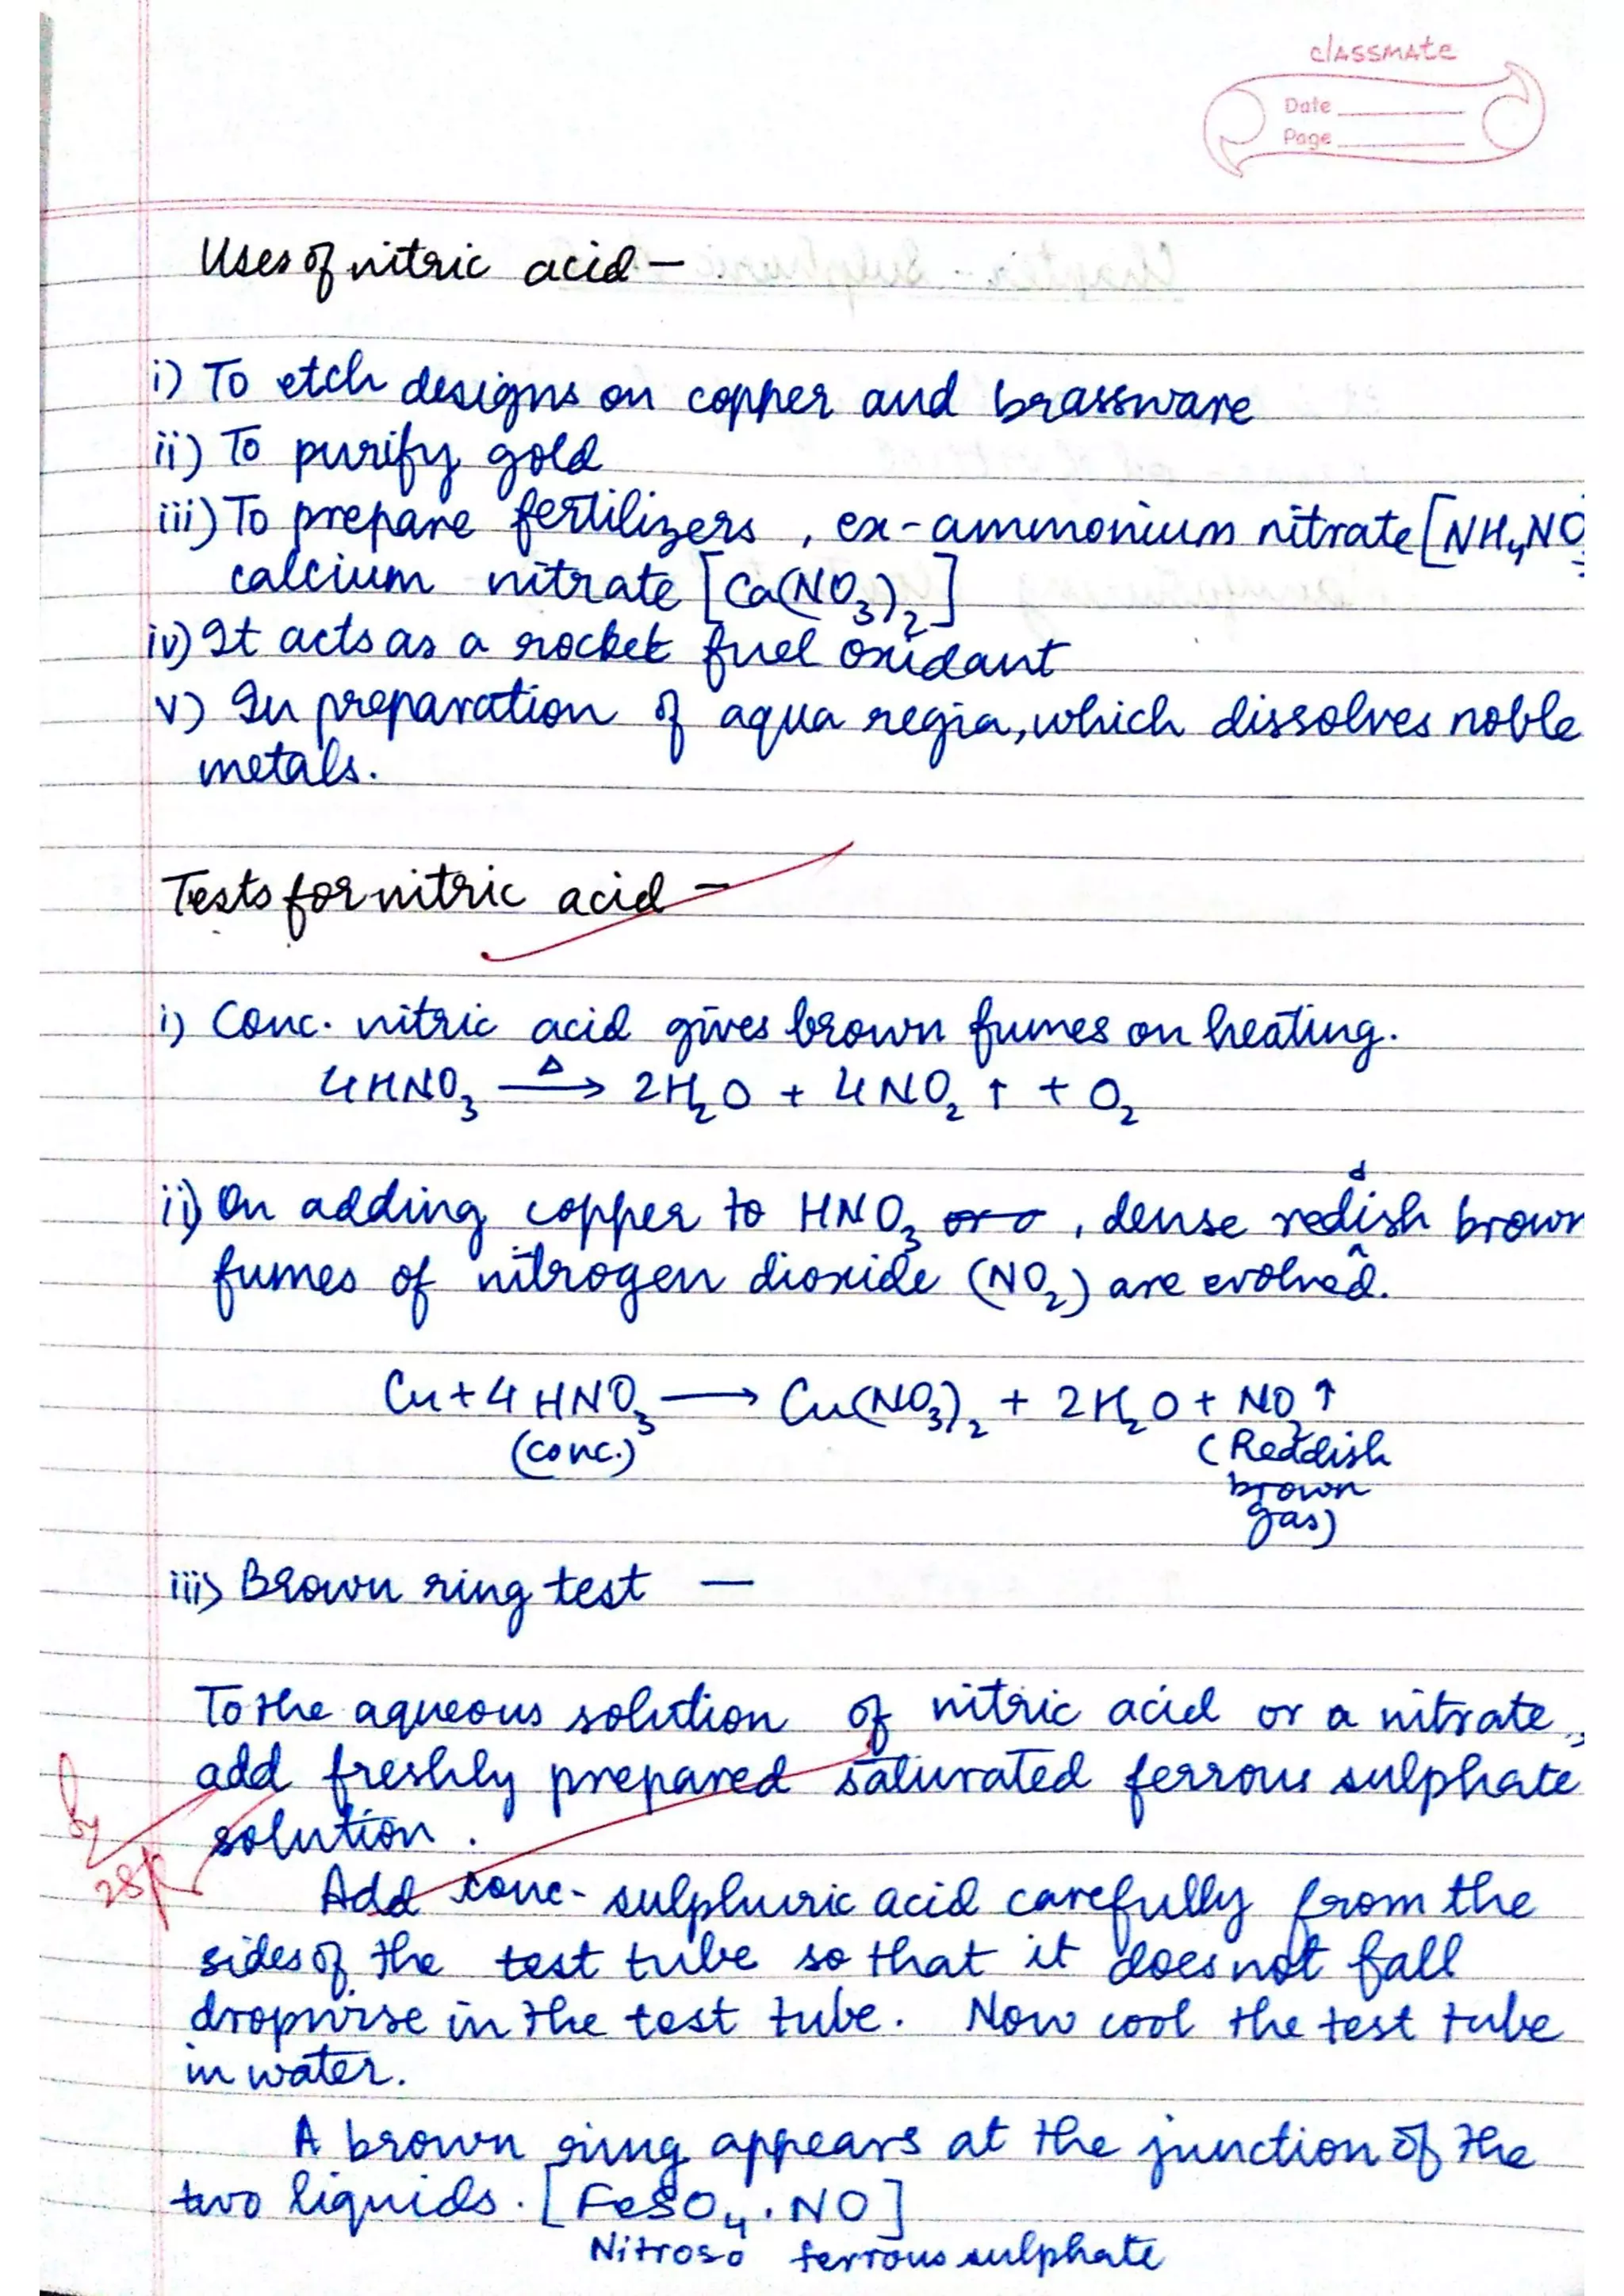 classmate
Date
Page
Uses of nitric acid –
i) To etch designs on copper and brassware
ii) To purify gold
iii) To prepare fertilizers, ex-ammonium nitrate [NH₄NO₃
calcium nitrate [Ca(NO₃)₂]
iv) It acts as a rocket fuel oxidant
v) In preparation of aqua regia, which dissolves noble
metals.
Tests for nitric acid –
i) Conc. nitric acid gives brown fumes on heating.
4HNO₃ —Δ→ 2H₂O + 4NO₂ ↑ + O₂
d
ii) On adding copper to HNO₃ or o, dense redish brown
fumes of nitrogen dioxide (NO₂) are evolved.
Cu + 4HNO₃ ⟶ Cu(NO₃)₂ + 2H₂O + NO₂↑
(conc.) (Reddish
brown
gas)
iii) Brown ring test –
To the aqueous solution of nitric acid or a nitrate,
add freshly prepared saturated ferrous sulphate
solution.
Add conc- sulphuric acid carefully from the
sides of the test tube so that it does not fall
dropwise in the test tube. Now cool the test tube
in water.
A brown ring appears at the junction of the
two liquids. [FeSO₄.NO]
Nitroso ferrous sulphate